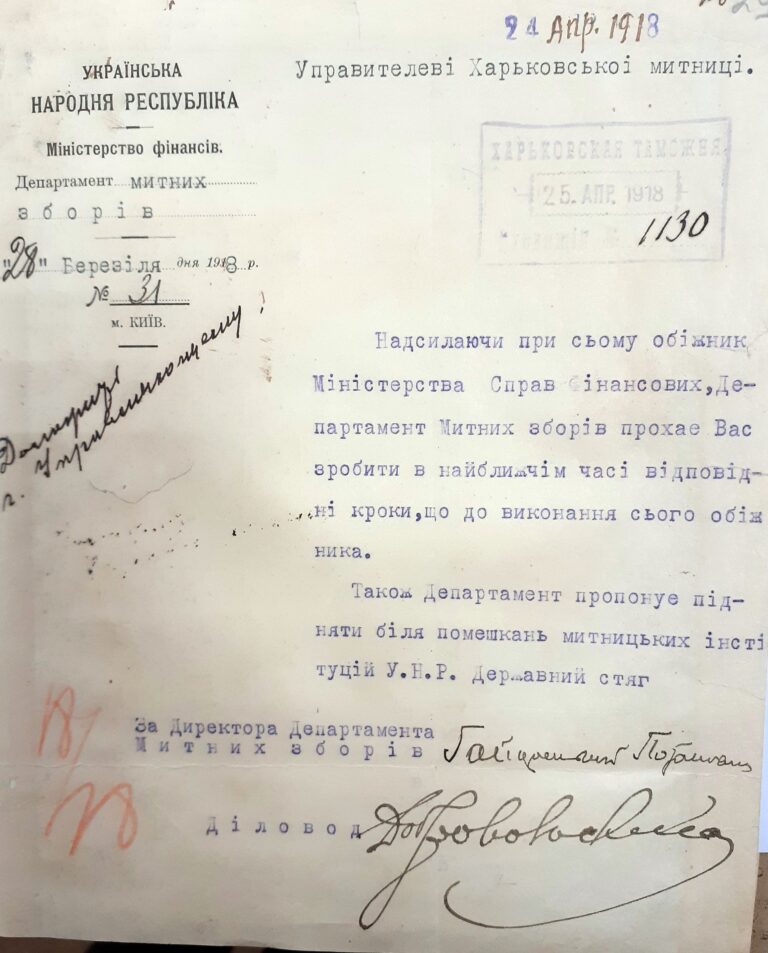 24 Апр. 1918
УКРАЇНСЬКА
НАРОДНЯ РЕСПУБЛІКА
Міністерство фінансів.
Департамент митних
зборів
"28" Березіля дня 1918 р.
№ 31
м. КИЇВ.
Управителеві Харьковської митниці.
ХАРЬКОВСКАЯ ТАМОЖНЯ
25. АПР. 1918
1130
г. Управляющему!
Надсилаючи при сьому обіжник
Міністерства Справ Фінансових,Де-
партамент Митних зборів прохає Вас
зробити в найближчім часі відповід-
ні кроки,що до виконання сього обіж
ника.
Також Департамент пропонує під-
няти біля помешкань митницьких інсті
туцій У.Н.Р. Державний стяг
За Директора Департамента
Митних зборів
Діловод